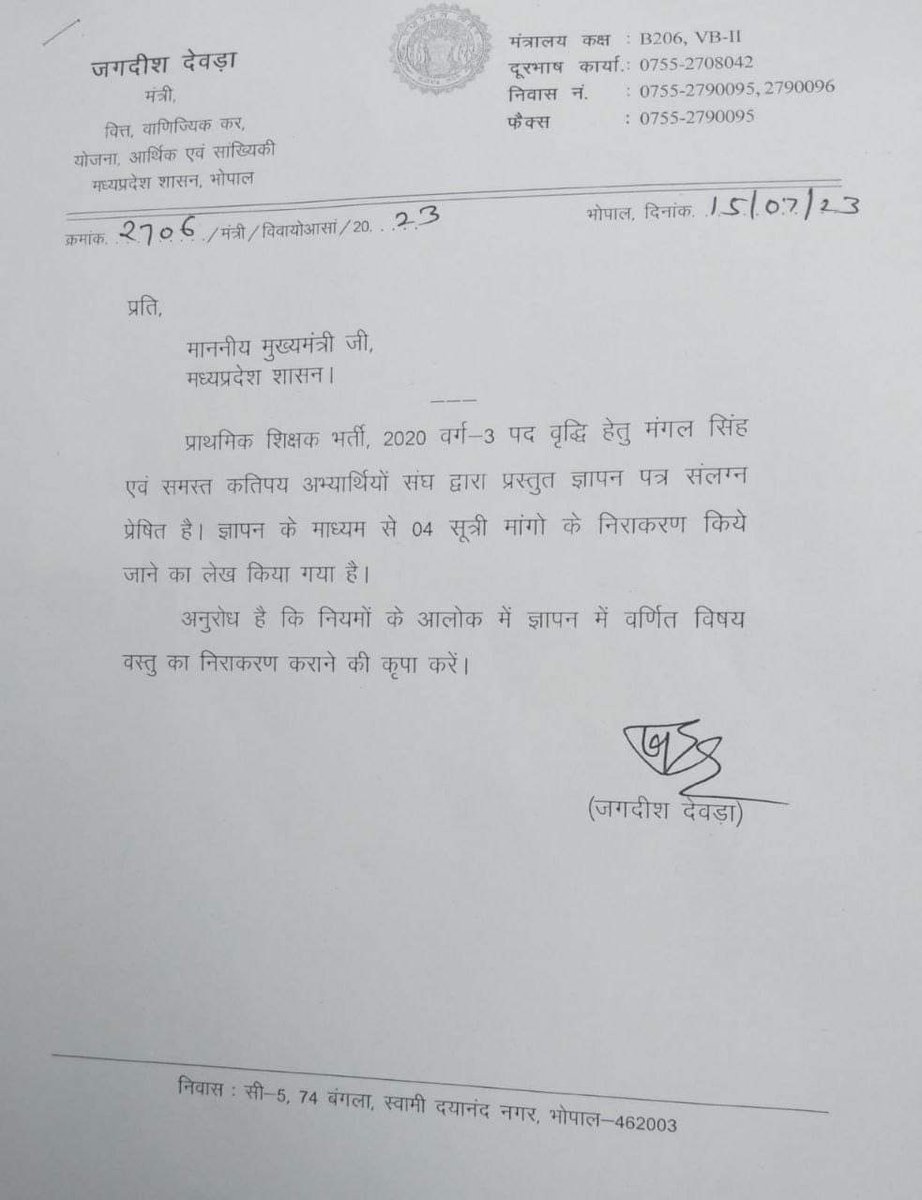 जगदीश देवड़ा
मंत्री,
वित्त, वाणिज्यिक कर,
योजना, आर्थिक एवं सांख्यिकी
मध्यप्रदेश शासन, भोपाल
मंत्रालय कक्ष : B206, VB-II
दूरभाष कार्या.: 0755-2708042
निवास नं. : 0755-2790095, 2790096
फैक्स : 0755-2790095
क्रमांक. 2706 /मंत्री/विवायोआसां/20. . 23
भोपाल, दिनांक. 15/07/23
प्रति,
माननीय मुख्यमंत्री जी,
मध्यप्रदेश शासन।
---
प्राथमिक शिक्षक भर्ती, 2020 वर्ग-3 पद वृद्धि हेतु मंगल सिंह
एवं समस्त कतिपय अभ्यार्थियों संघ द्वारा प्रस्तुत ज्ञापन पत्र संलग्न
प्रेषित है। ज्ञापन के माध्यम से 04 सूत्री मांगो के निराकरण किये
जाने का लेख किया गया है।
अनुरोध है कि नियमों के आलोक में ज्ञापन में वर्णित विषय
वस्तु का निराकरण कराने की कृपा करें।
(जगदीश देवड़ा)
निवास : सी-5, 74 बंगला, स्वामी दयानंद नगर, भोपाल-462003